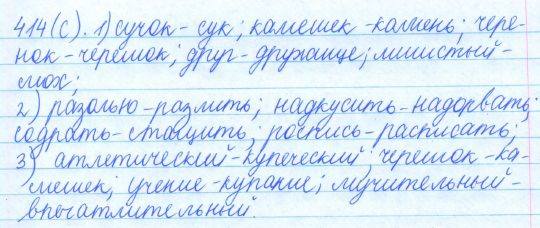 414(С). 1) сучок - сук; камешек - камень; чере-
нок - черешок; друг - дружище; мшистый -
мох;
2) разолью - разлить; надкусить - надорвать;
содрать - стащить; роспись - расписать;
3) атлетический - купеческий; черешок - ка-
мешек; учение - купание; мучительный -
впечатлительный.